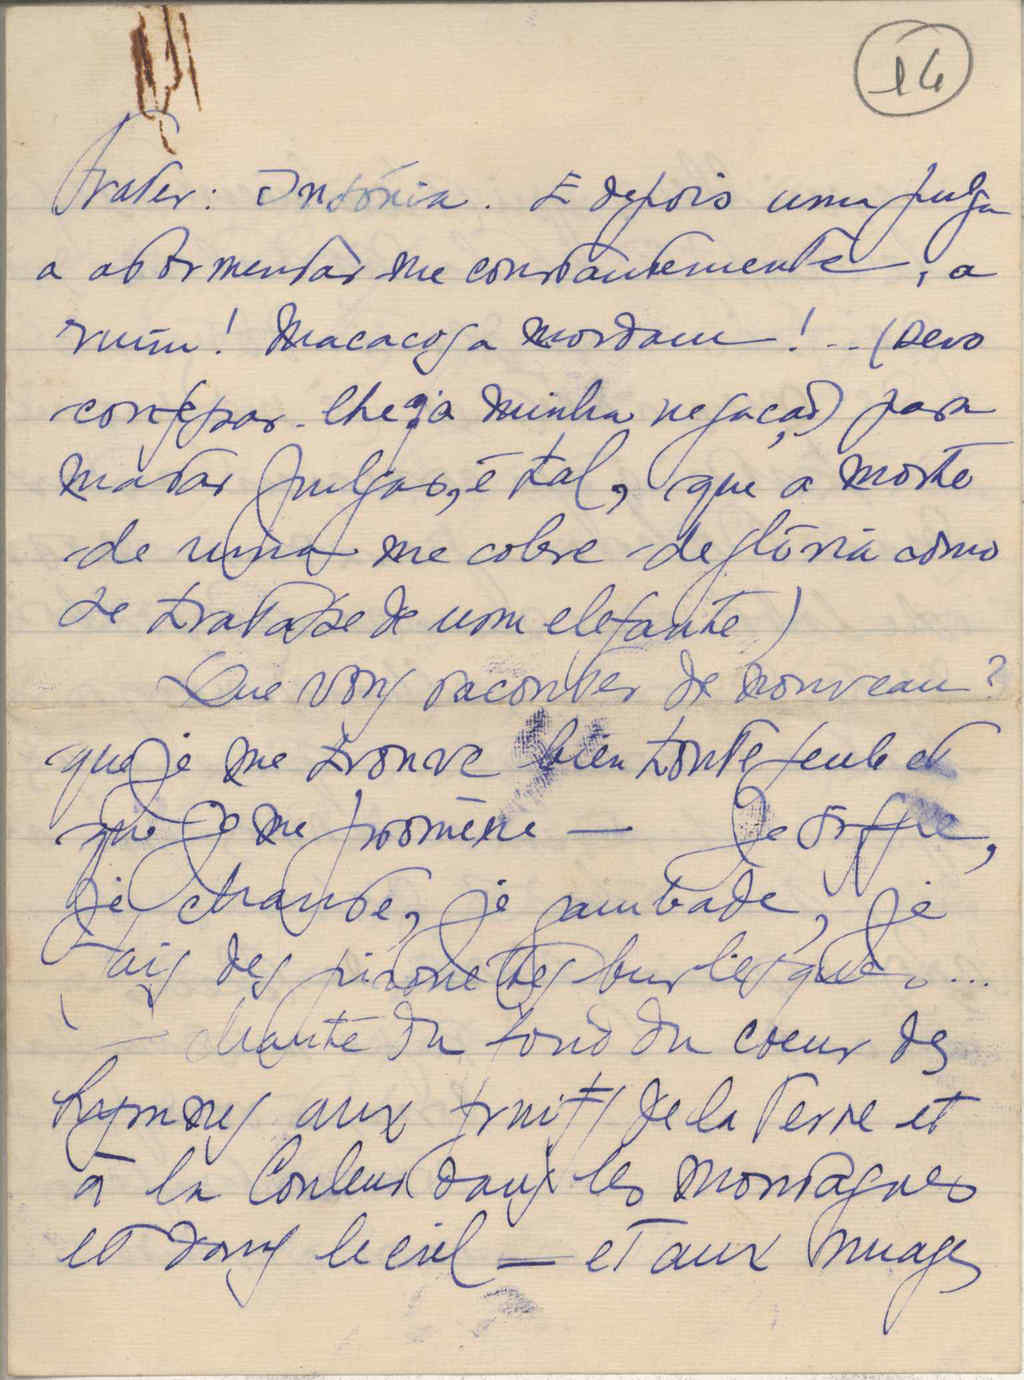 14
Frater: Insónia. E depois uma pulga
a atormentar me constantemente, a
ruim! Macacoga mordam! .. (Devo
confessar-lhe q a minha negação para
matar pulgas, é tal, que a morte
de uma me cobre de glória como
se tratasse de um elefante)
Que vous raconter de nouveau?
que je me trouve bien toute seule et
que je me promène — Je siffle,
je chante, je gambade, je
fais des pirouettes burlesques ...
— Chante du fond du coeur des
hymnes aux fruits de la Terre et
à la Couleur dans les montagnes
et dans le ciel — et aux nuages